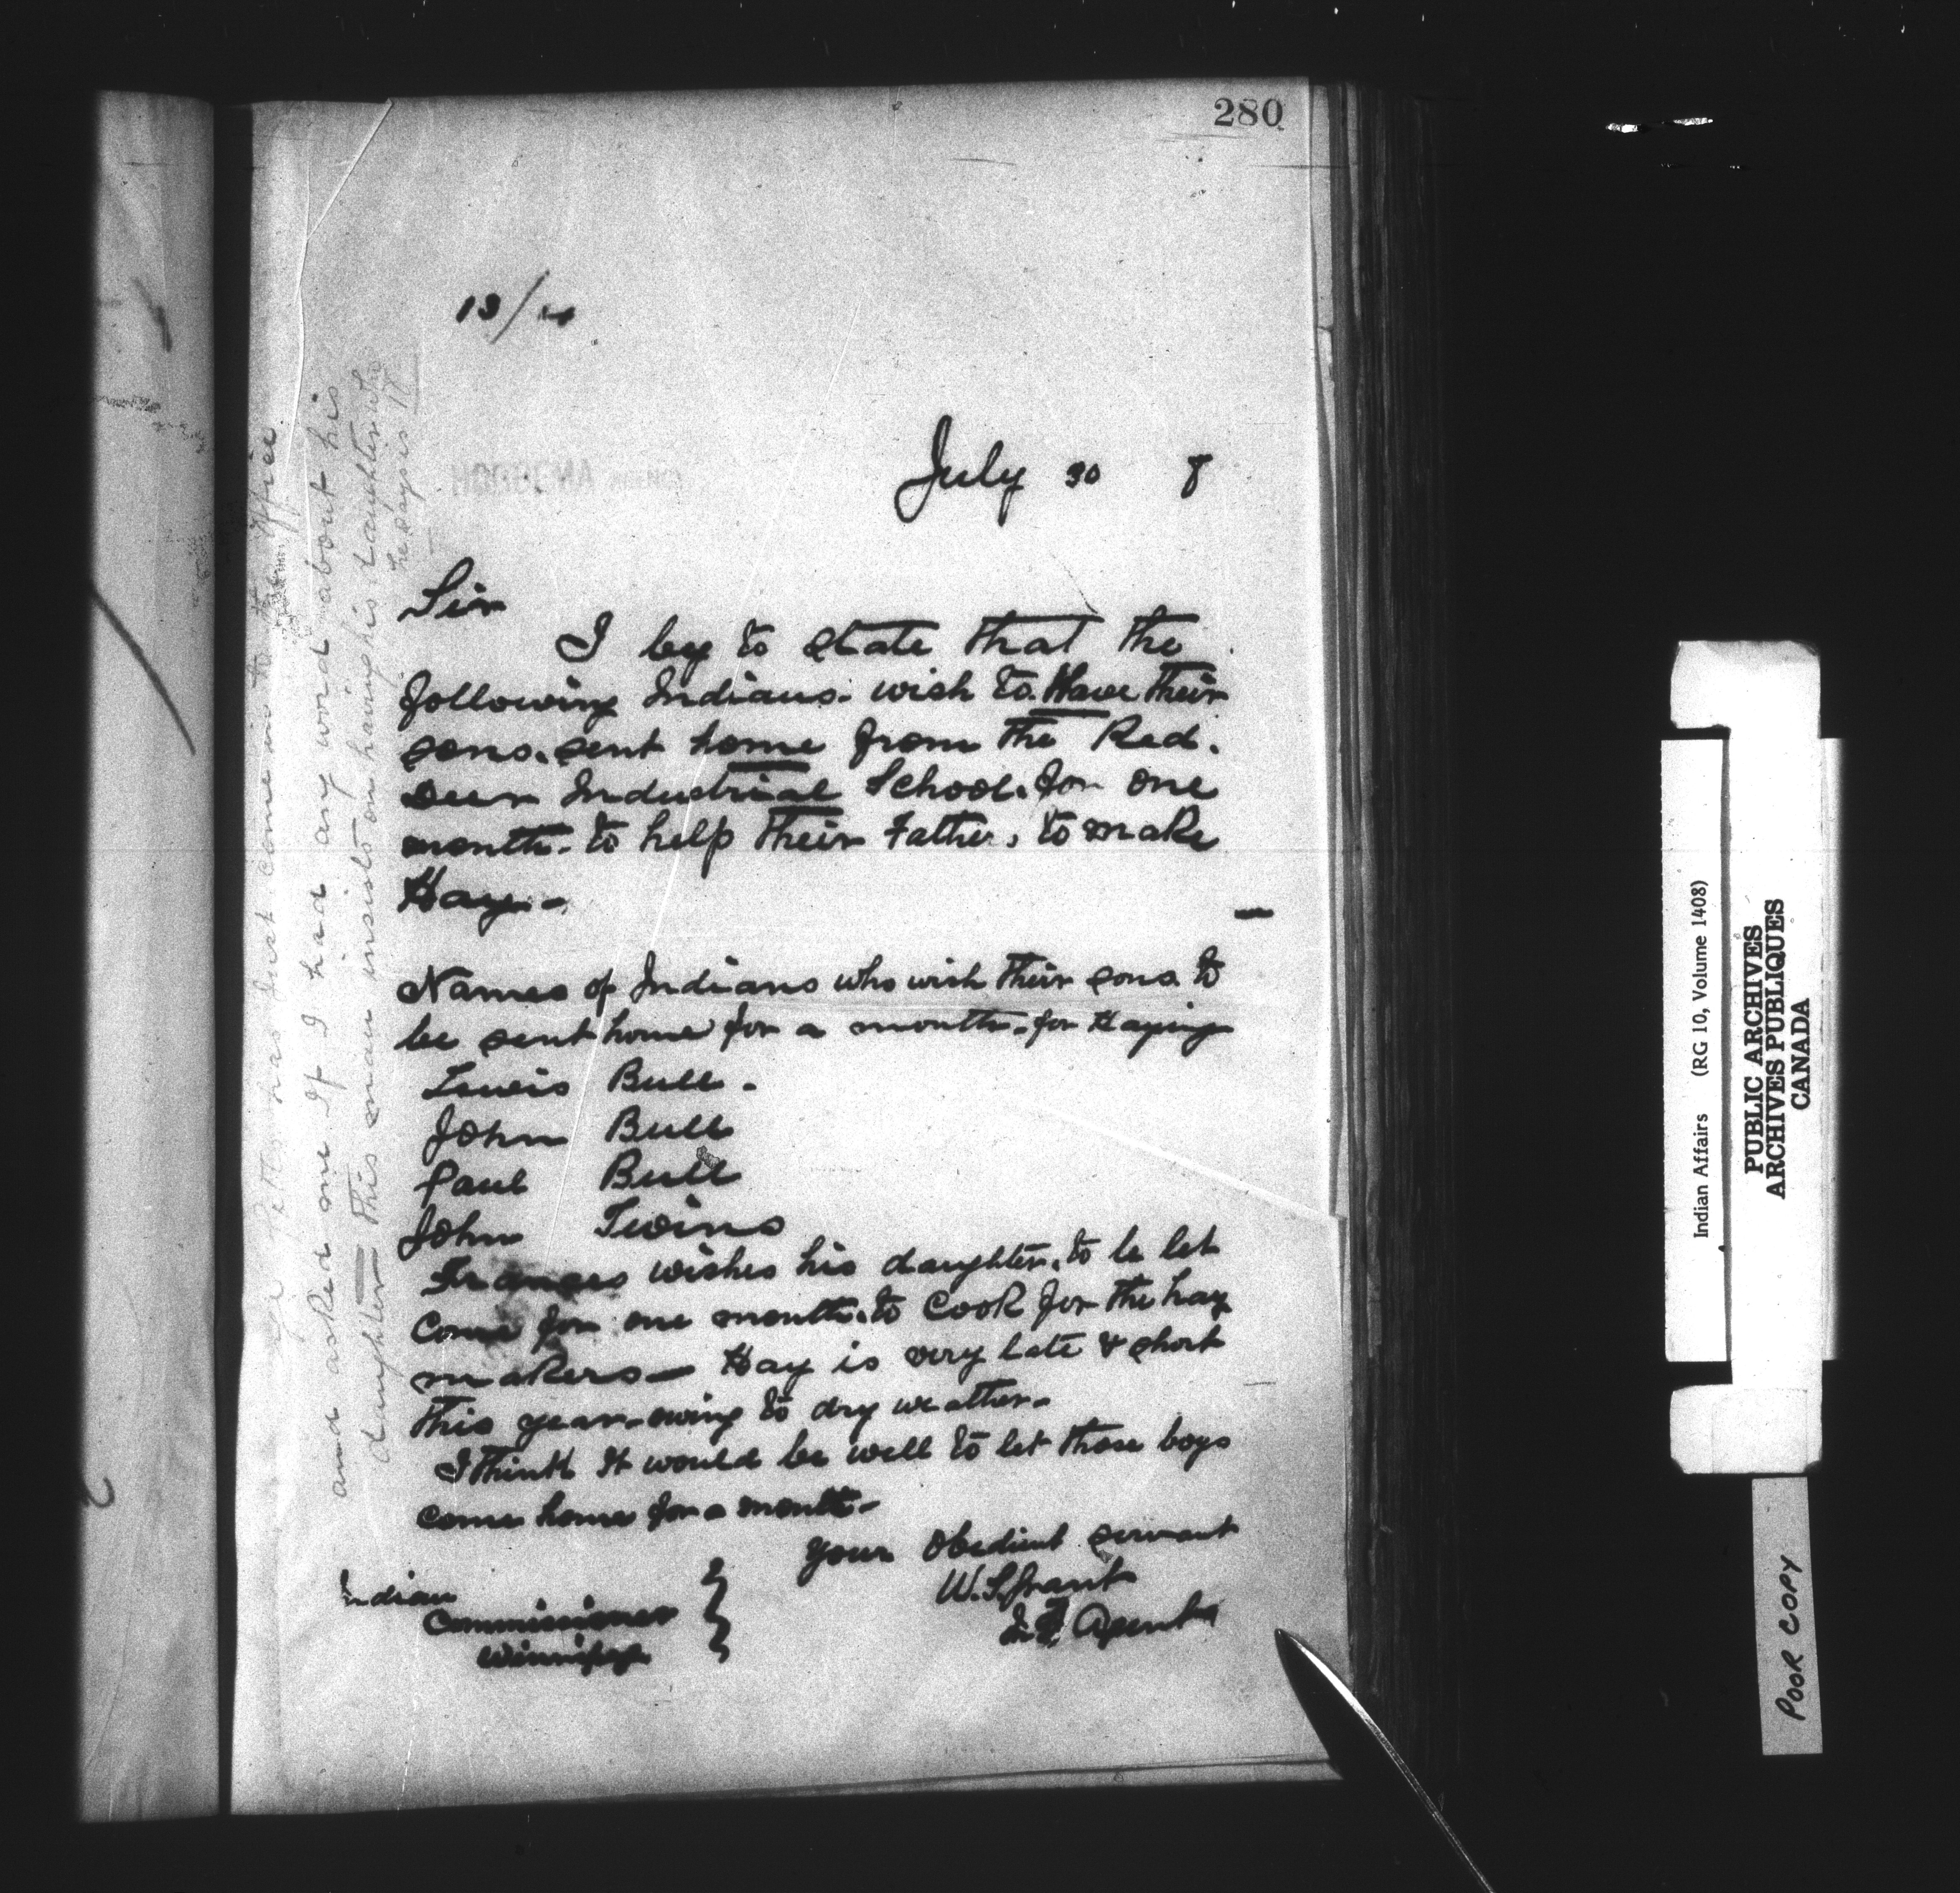 280
13/
July 30 8
HOBBEMA AGENCY
Sir
I beg to state that the
following Indians. wish to Have their
sons. sent home from the Red.
Deer Industrial School. for one
month. to help their Father, to make
Hay.-
Names of Indians who wish their sons to
be sent home for a month. for Haying
Lewis Bull.
John Bull
Paul Bull
John Twins
wishes his daughter. to be let
Come for one month. to Cook for the hay
makers - Hay is very late & short
this year. owing to dry weather.
I think It would be well to let those boys
come home for a month-
Your Obedient servant
W.S. Grant
Ind. Agent
Indian
Commissioner
Winnipeg
has just come in to the office.
and asked me If I had any word about his
daughter - This man insists on having his daughter who
he says is
Indian Affairs (RG 10, Volume 1408)
PUBLIC ARCHIVES
ARCHIVES PUBLIQUES
CANADA
POOR COPY